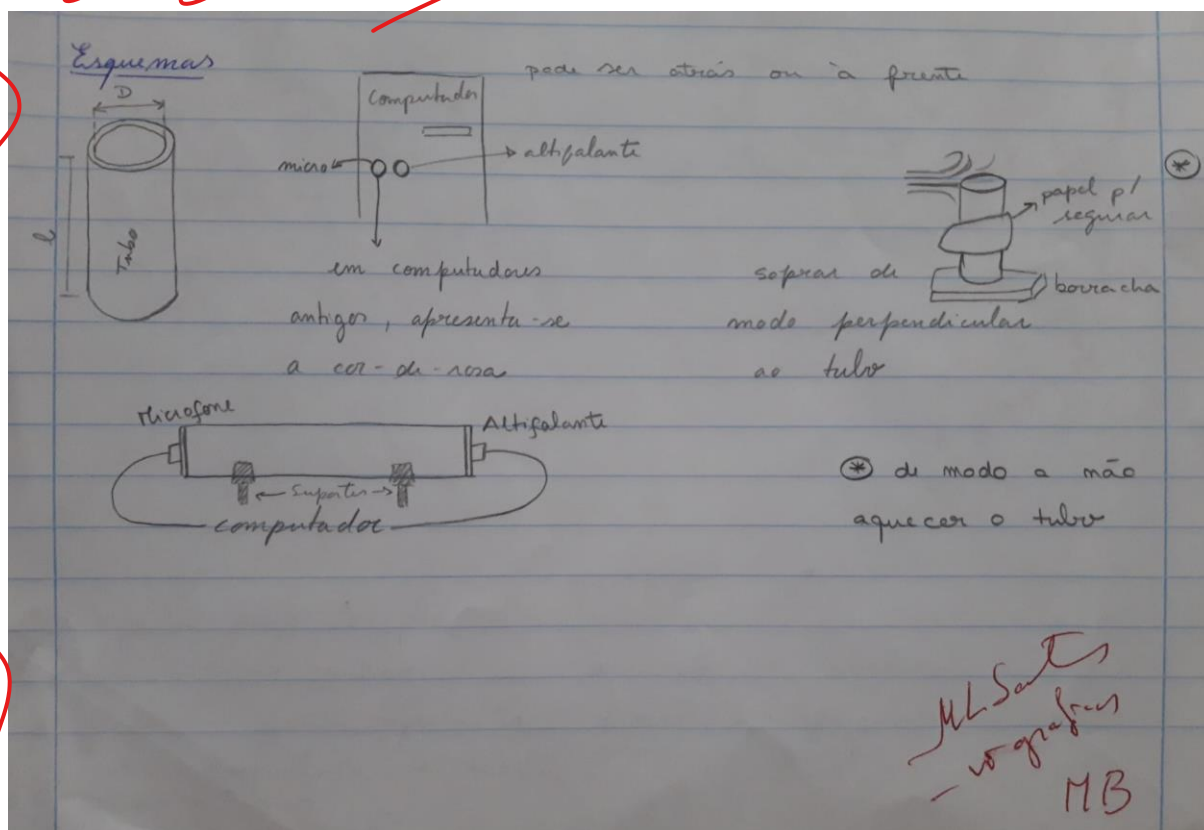 Esquemas
pode ser atrás ou à frente
D
l
Tubo
Computador
micro
altifalante
em computadores
antigos, apresenta-se
a cor-de-rosa
*
papel p/
segurar
borracha
soprar de
modo perpendicular
ao tubo
Microfone
Altifalante
suportes
computador
* de modo a não
aquecer o tubo
MLSantos
MB